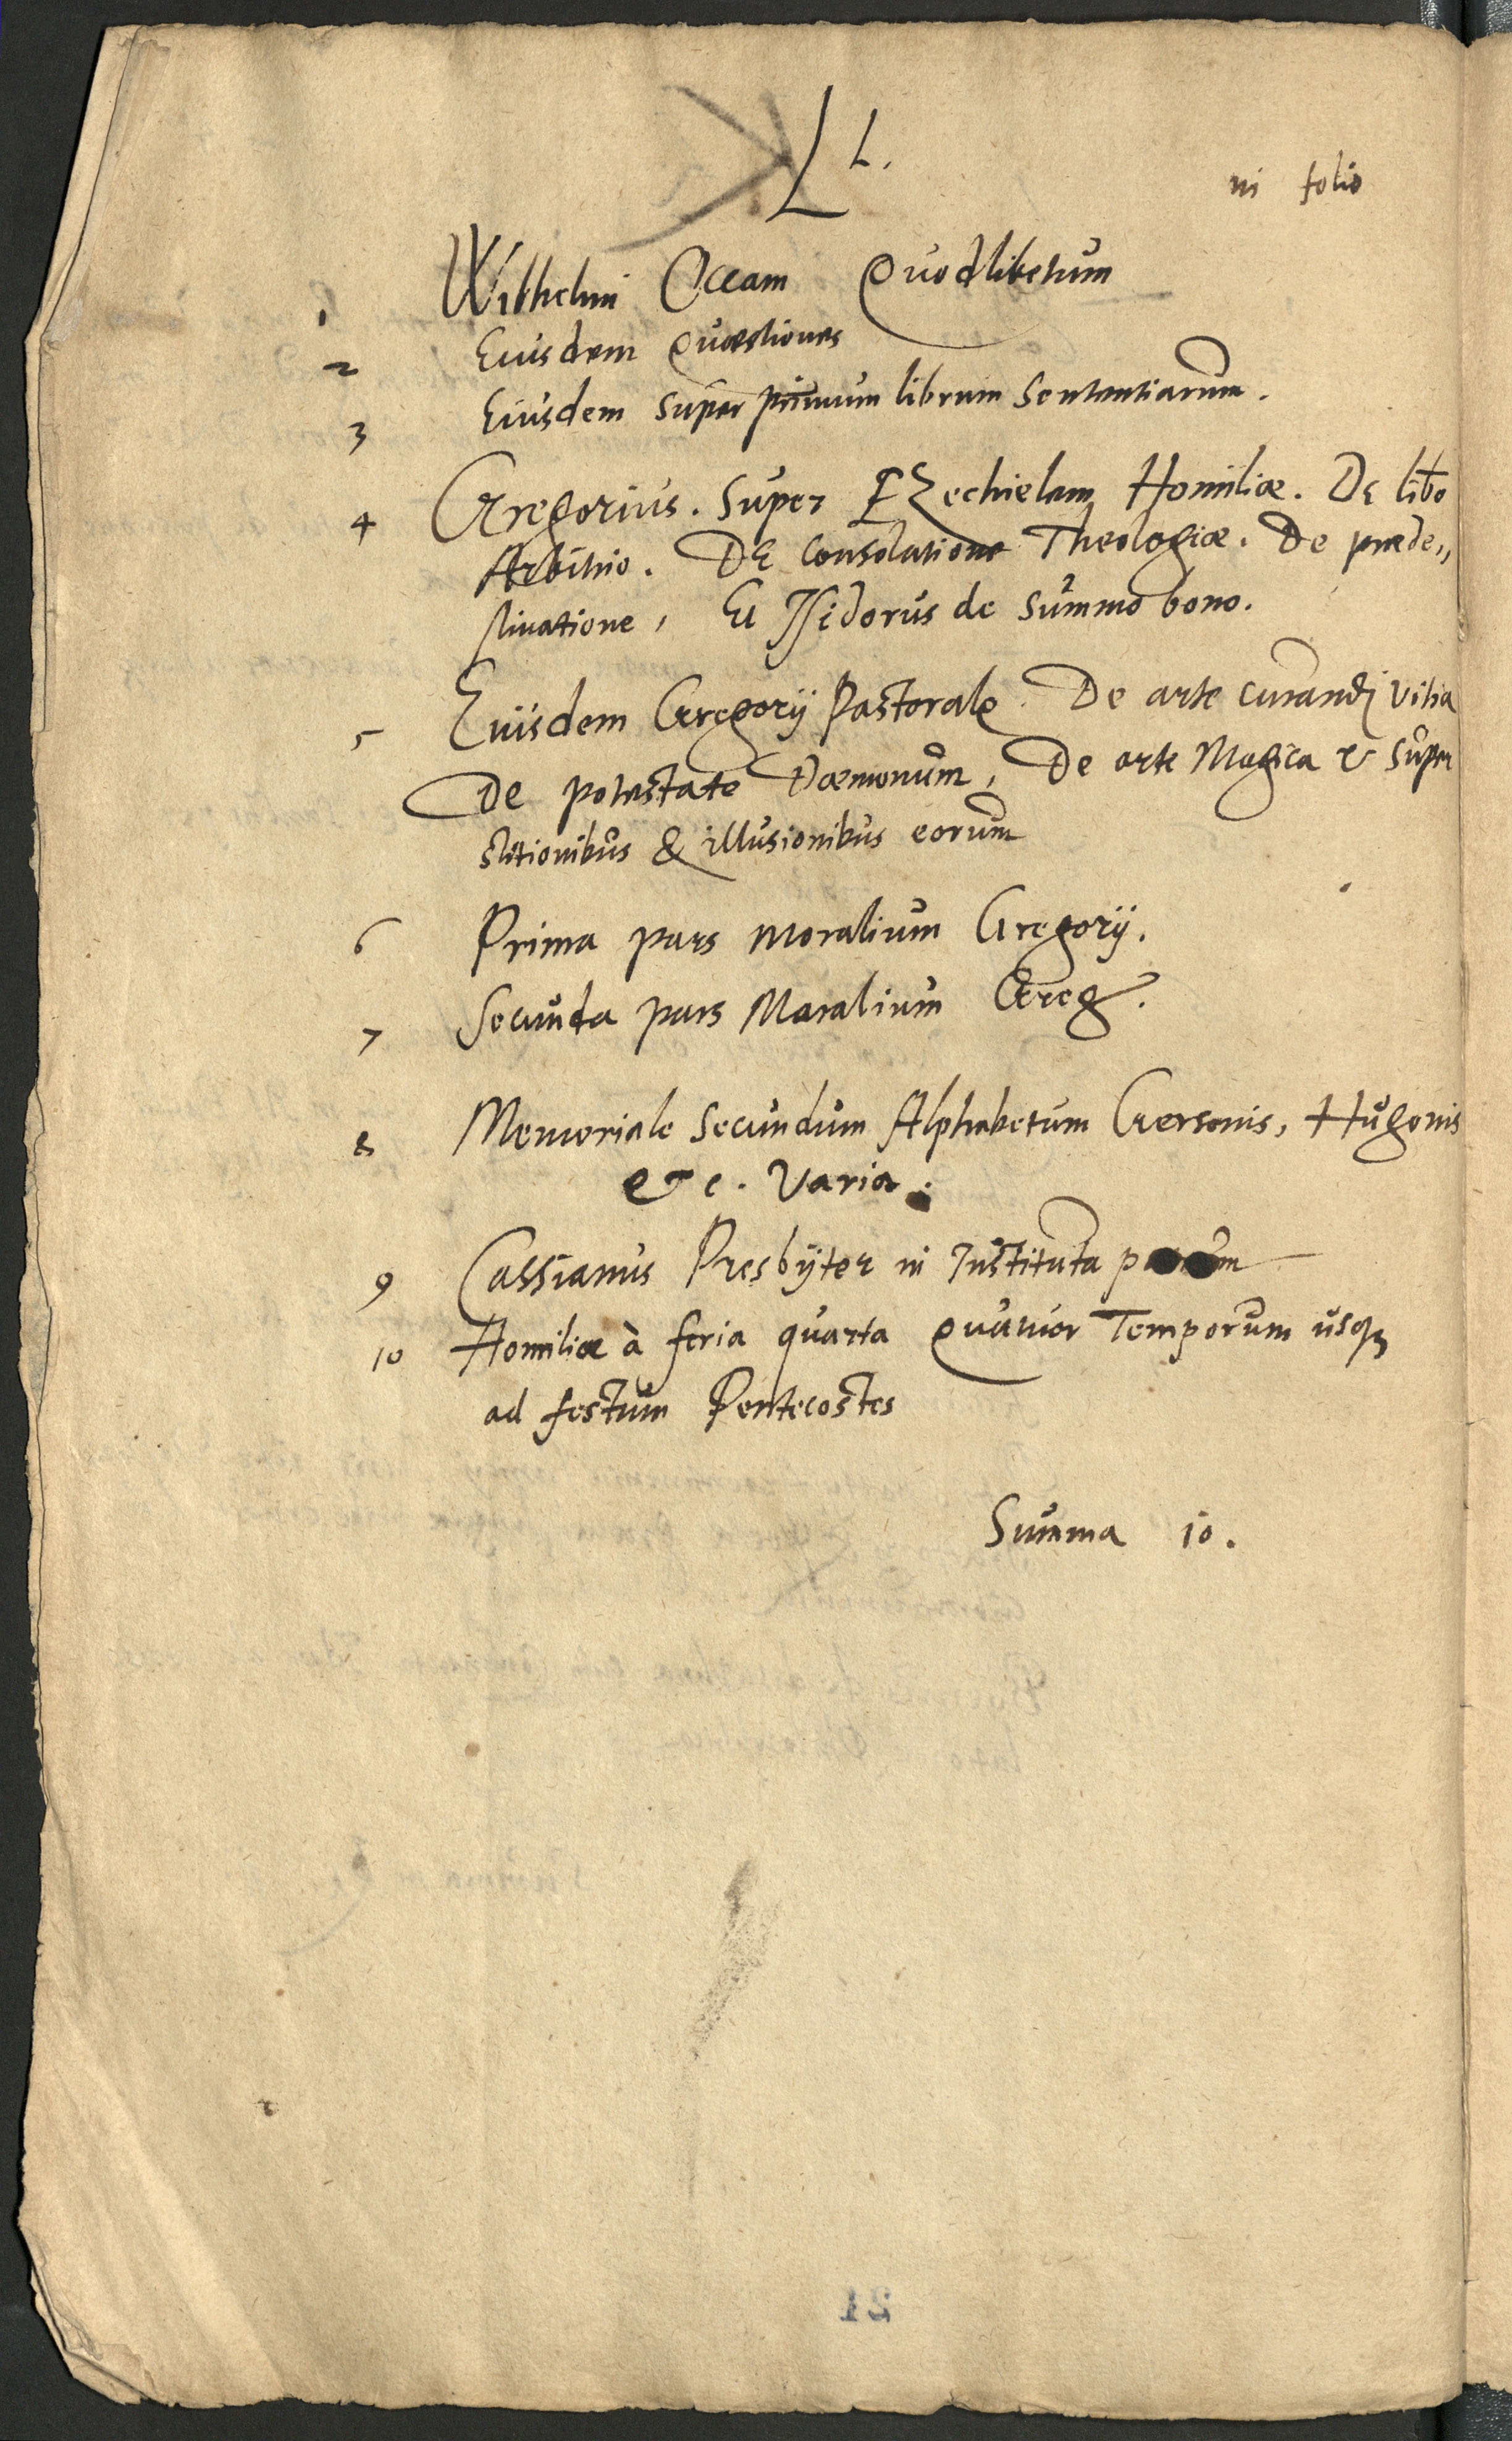 L L.
in folio
1 Wilhelmi Occam Quodlibetum
2 Eiusdem Quæstiones
3 Eiusdem super primum librum Sententiarum.
4 Gregorius. Super EZechielem Homiliæ. De libo
Arbitrio. De Consolatione Theologiæ. De præde„
stinatione, Et Isidorus de summo bono.
5 Eiusdem Gregorij Pastorale. De arte curandi vitia
De potestate Dæmonum, De arte Magica & super
stitionibus & illusionibus eorum
6 Prima pars moralium Gregorij.
7 Secunda pars Moralium Greg.
8 Memoriale secundum Alphabetum Gersonis, Hugonis
&c. Varia.
9 Cassianus Presbÿter in Instituta
10 Homiliæ à feria quarta Quatuor Temporum usq3
ad festum Pentecostes
Summa 10.